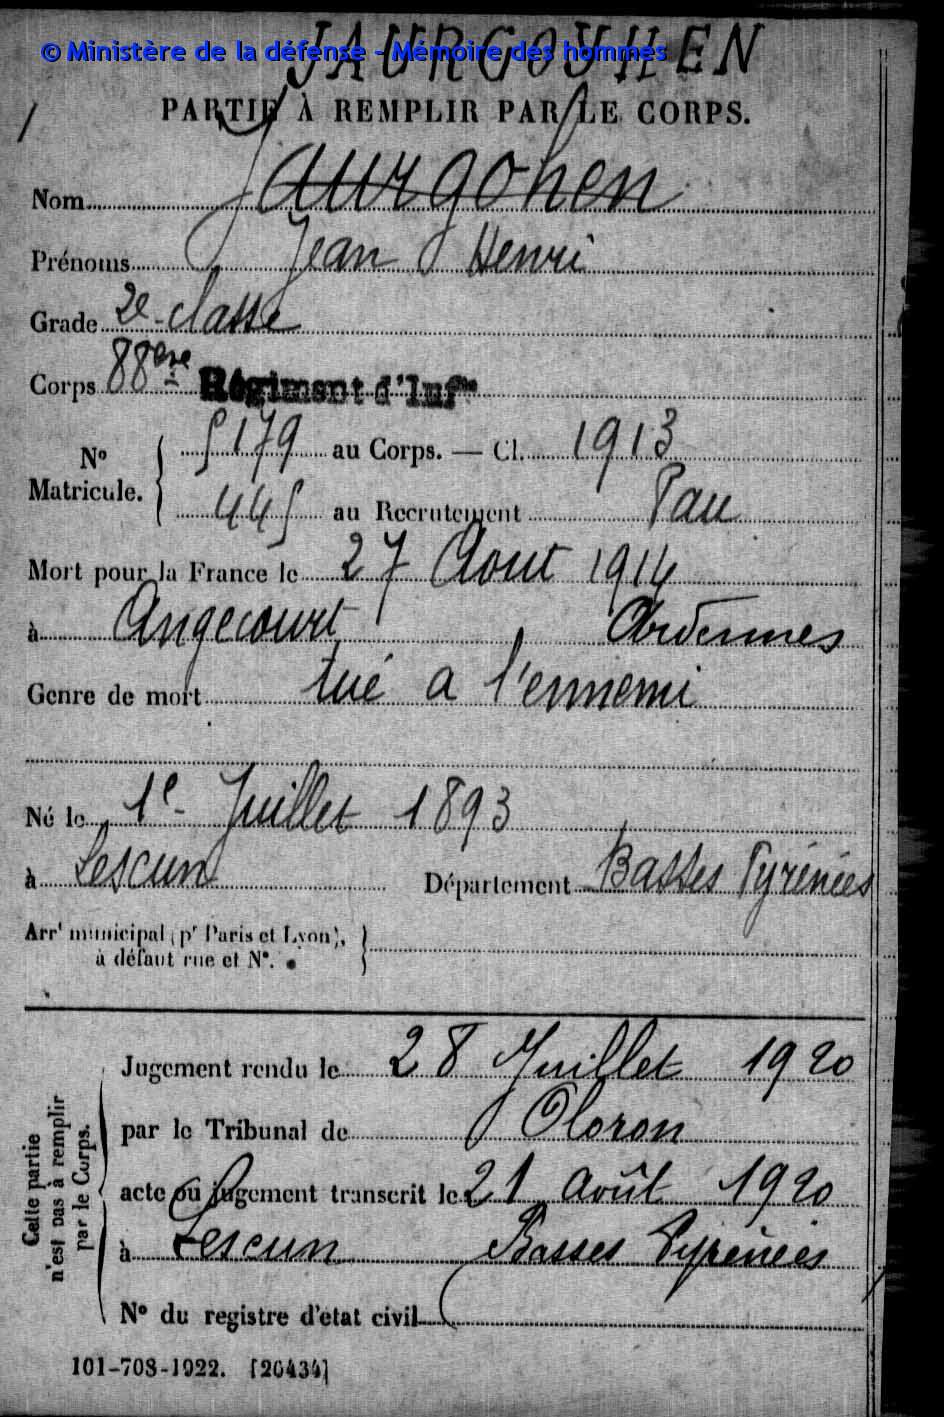 JAURGOUHEN
© Ministère de la défense - Mémoire des hommes
PARTIE À REMPLIR PAR LE CORPS.
Nom Jaurgohen
Prénoms Jean Henri
Grade 2e classe
Corps 88ème Régiment d'Infie
N° Matricule. { 5179 au Corps. — Cl. 1913
445 au Recrutement Pau
Mort pour la France le 27 Aout 1914
à Angecourt Ardennes
Genre de mort tué a l'ennemi
Né le 1e Juillet 1893
à Lescun Département Basses Pyrénées
Arrt municipal (pr Paris et Lyon), }
à défaut rue et N°.
Cette partie n'est pas à remplir par le Corps.
Jugement rendu le 28 Juillet 1920
par le Tribunal de Oloron
acte ou jugement transcrit le 21 août 1920
à Lescun Basses Pyrénées
N° du registre d'état civil
101-708-1922. [26434]